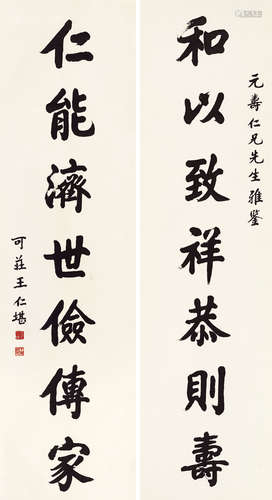 元壽仁兄先生雅鉴
和以致祥恭則壽
仁能濟世儉傳家
可莊王仁堪